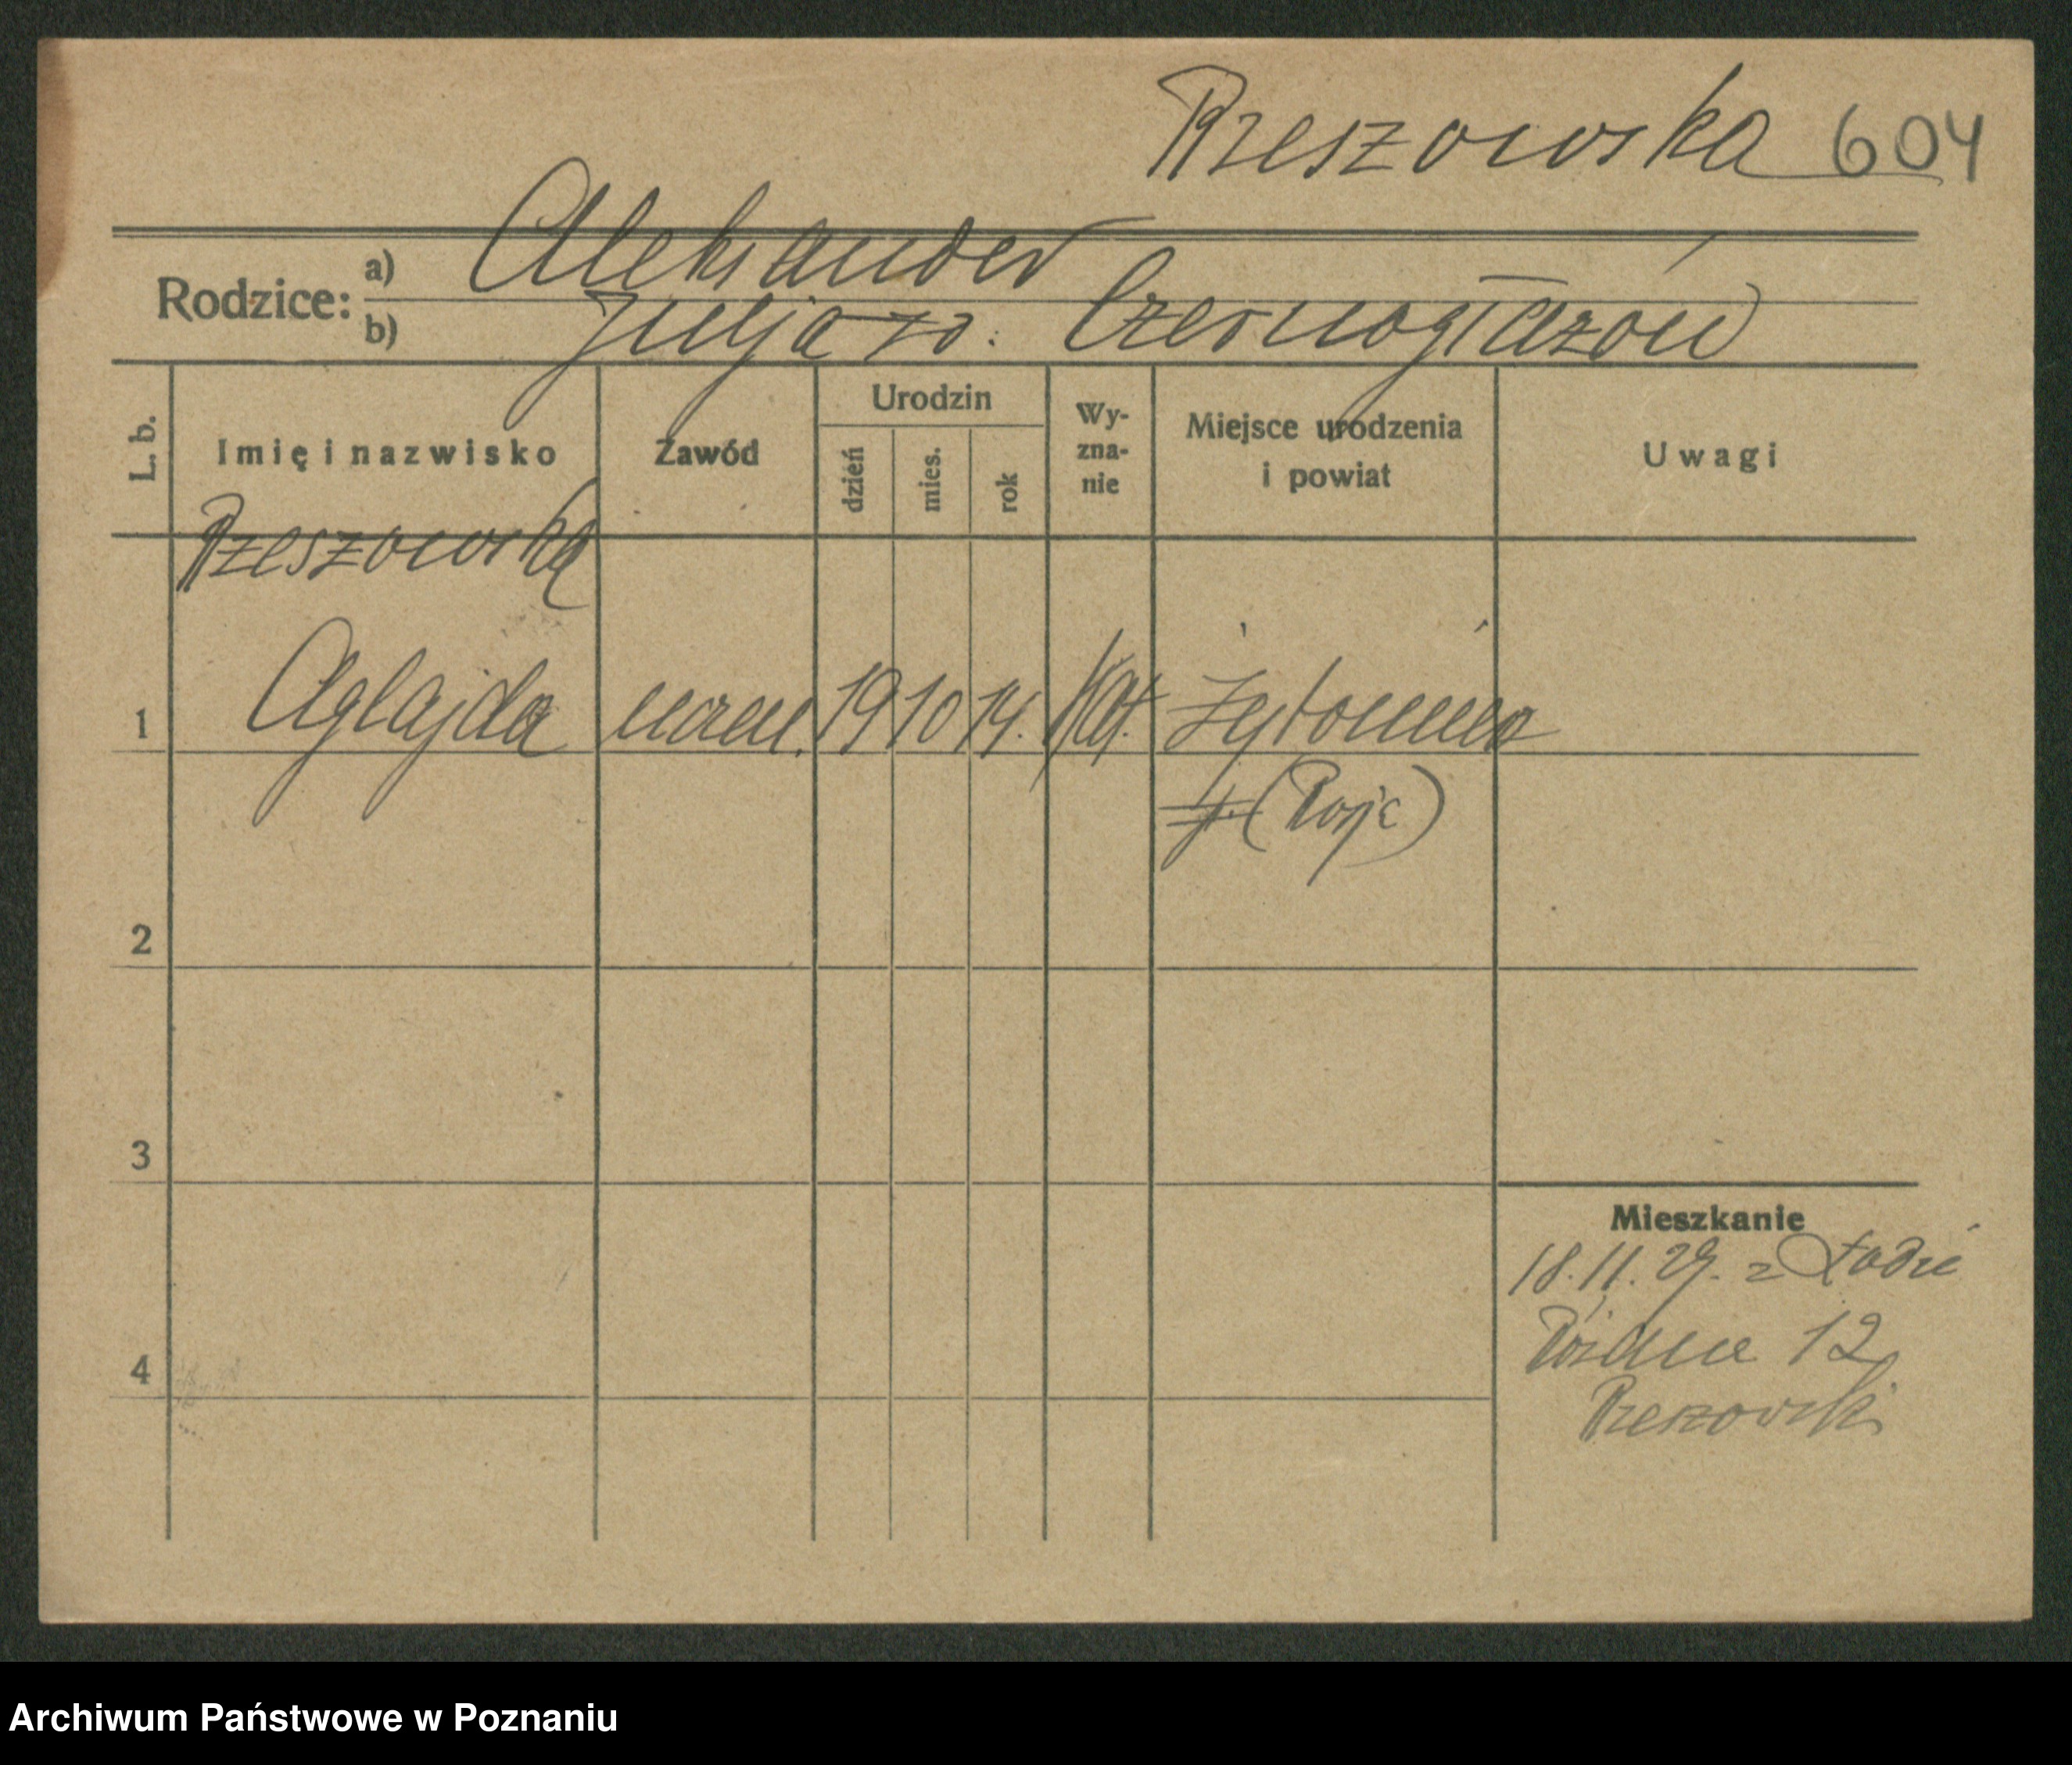 Rzeszowska 604
Rodzice: a) Aleksander
b) Julja zd. Czernogłazów
L. b.
Imię i nazwisko
Zawód
Urodzin
dzień
mies.
rok
Wy-
zna-
nie
Miejsce urodzenia
i powiat
Uwagi
Rzeszowska
1 Aglajda uczen. 19 10 14. kat. Żytomierz
(Rosja)
2
3
4
Mieszkanie
18.11.29. z Łodzi
12
Rzeszowski
Archiwum Państwowe w Poznaniu